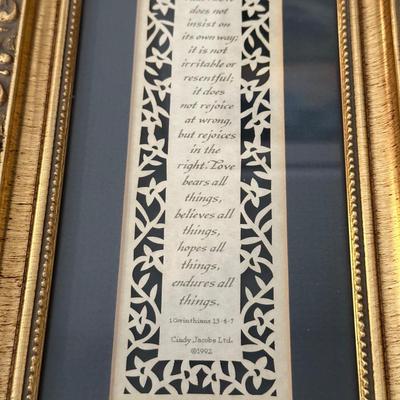 does not
insist on
its own way;
it is not
irritable or
resentful;
it does
not rejoice
at wrong,
but rejoices
in the
right. Love
bears all
things,
believes all
things,
hopes all
things,
endures all
things.
1 Corinthians 13·6-7
Cindy Jacobs Ltd.
©1992